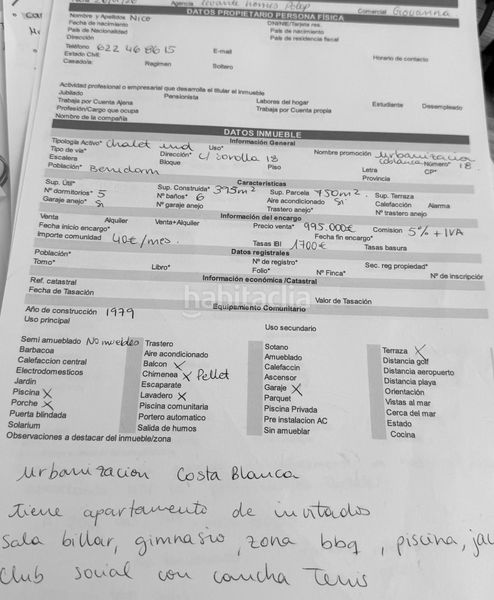 Agencia Levante Homes Polop Comercial Giovanna
DATOS PROPIETARIO PERSONA FÍSICA
Nombre y Apellidos Nico DNI/NIE/Tarjeta res.
Fecha de nacimiento Pais de nacimiento
País de Nacionalidad Pais de residencia fiscal
Dirección
Teléfono 622 46 86 15 E-mail Horario de contacto
Estado Civil:
Casado/a: Regimen Soltero
Actividad profesional o empresarial que desarrolla el titular el inmueble
Jubilado Pensionista Labores del hogar Estudiante Desempleado
Trabaja por Cuenta Ajena Trabaja por Cuenta propia
Profesión/Cargo que ocupa
Nombre de la compañia
DATOS INMUEBLE
Información General
Tipología Activo* chalet ind Uso* Nombre promoción urbanizacion
Tipo de vía* Dirección* C/ Sorolla 18 Costa blanca Número* 18
Escalera Bloque Piso Letra CP*
Población* Benidorm Provincia
Características
Sup. Útil* Sup. Construida* 395m² Sup. Parcela 750m² Sup. Terraza
Nº dormitorios* 5 Nº baños* 6 Aire acondicionado Si Calefacción Alarma
Garaje anejo* Si Nº garaje anejo Trastero anejo* Nº trastero anejo
Información del encargo
Venta Alquiler Venta+Alquiler Precio venta* 995.000€ Comision 5% + IVA
Fecha inicio encargo* Fecha fin encargo*
Importe comunidad 40€/mes. Tasas IBI 1700€ Tasas basura
Datos registrales
Población* Nº de registro* Sec. reg propiedad*
Tomo* Libro* Folio* Nº Finca* Nº de inscripción
Información económica /Catastral
Ref. catastral
Fecha de Tasación Valor de Tasación
habitaclia
Equipamiento Comunitario
Año de construcción 1979
Uso principal Uso secundario
Semi amueblado No muebles Trastero Sotano Terraza X
Barbacoa Aire acondicionado Amueblado Distancia golf
Calefaccion central Balcon X Calefaccin Distancia aeropuerto
Electrodomesticos Chimenea X Pellet Ascensor Distancia playa
Jardin Escaparate Garaje X Orientación
Piscina X Lavadero X Parquet Vistas al mar
Porche X Piscina comunitaria Piscina Privada Cerca del mar
Puerta blindada Portero automatico Pre instalacion AC Estado
Solarium Salida de humos Sin amueblar Cocina
Observaciones a destacar del inmueble/zona
urbanizacion Costa Blanca
tiene apartamento de invitados
Sala billar, gimnasio, zona bbq, piscina, jac
Club social con cancha Tenis